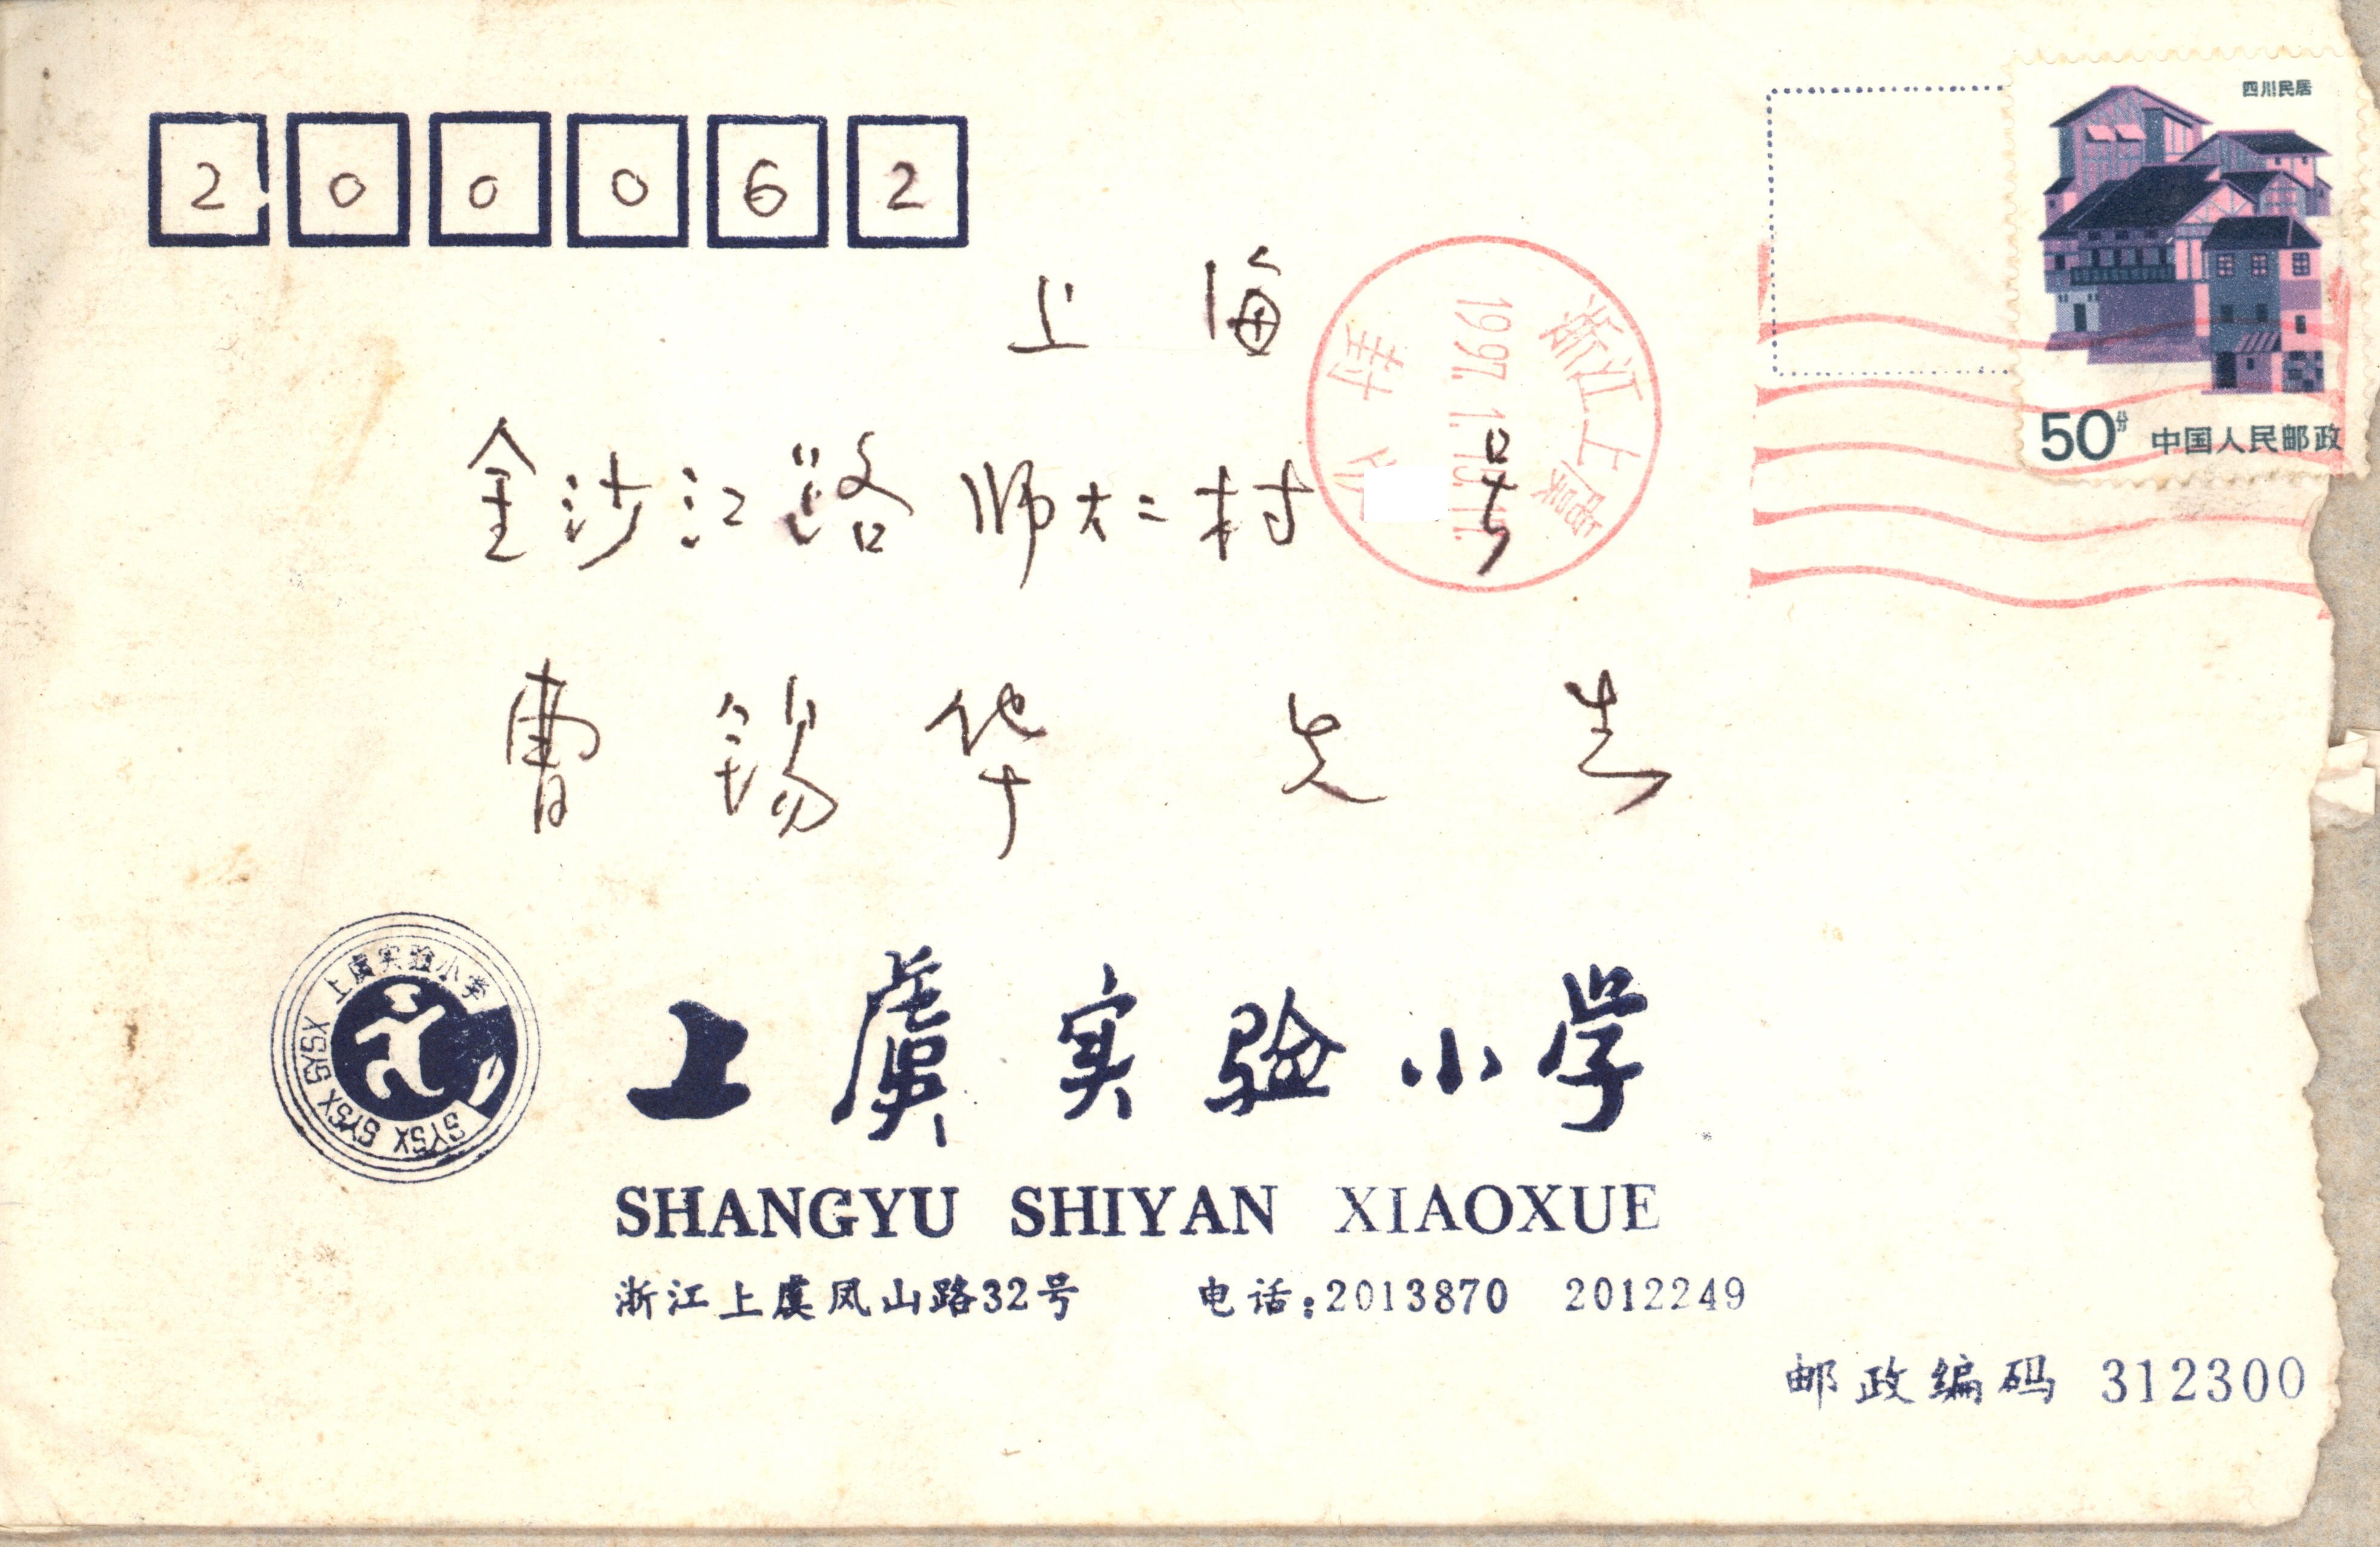 四川民居
200062
上海
浙江上虞
1997.1.15.11.
封
50分 中国人民邮政
金沙江路师大二村 号
曹锡华 先生
上虞实验小学
SYSX SYSX SYSX
上虞实验小学
SHANGYU SHIYAN XIAOXUE
浙江上虞凤山路32号 电话:2013870 2012249
邮政编码 312300